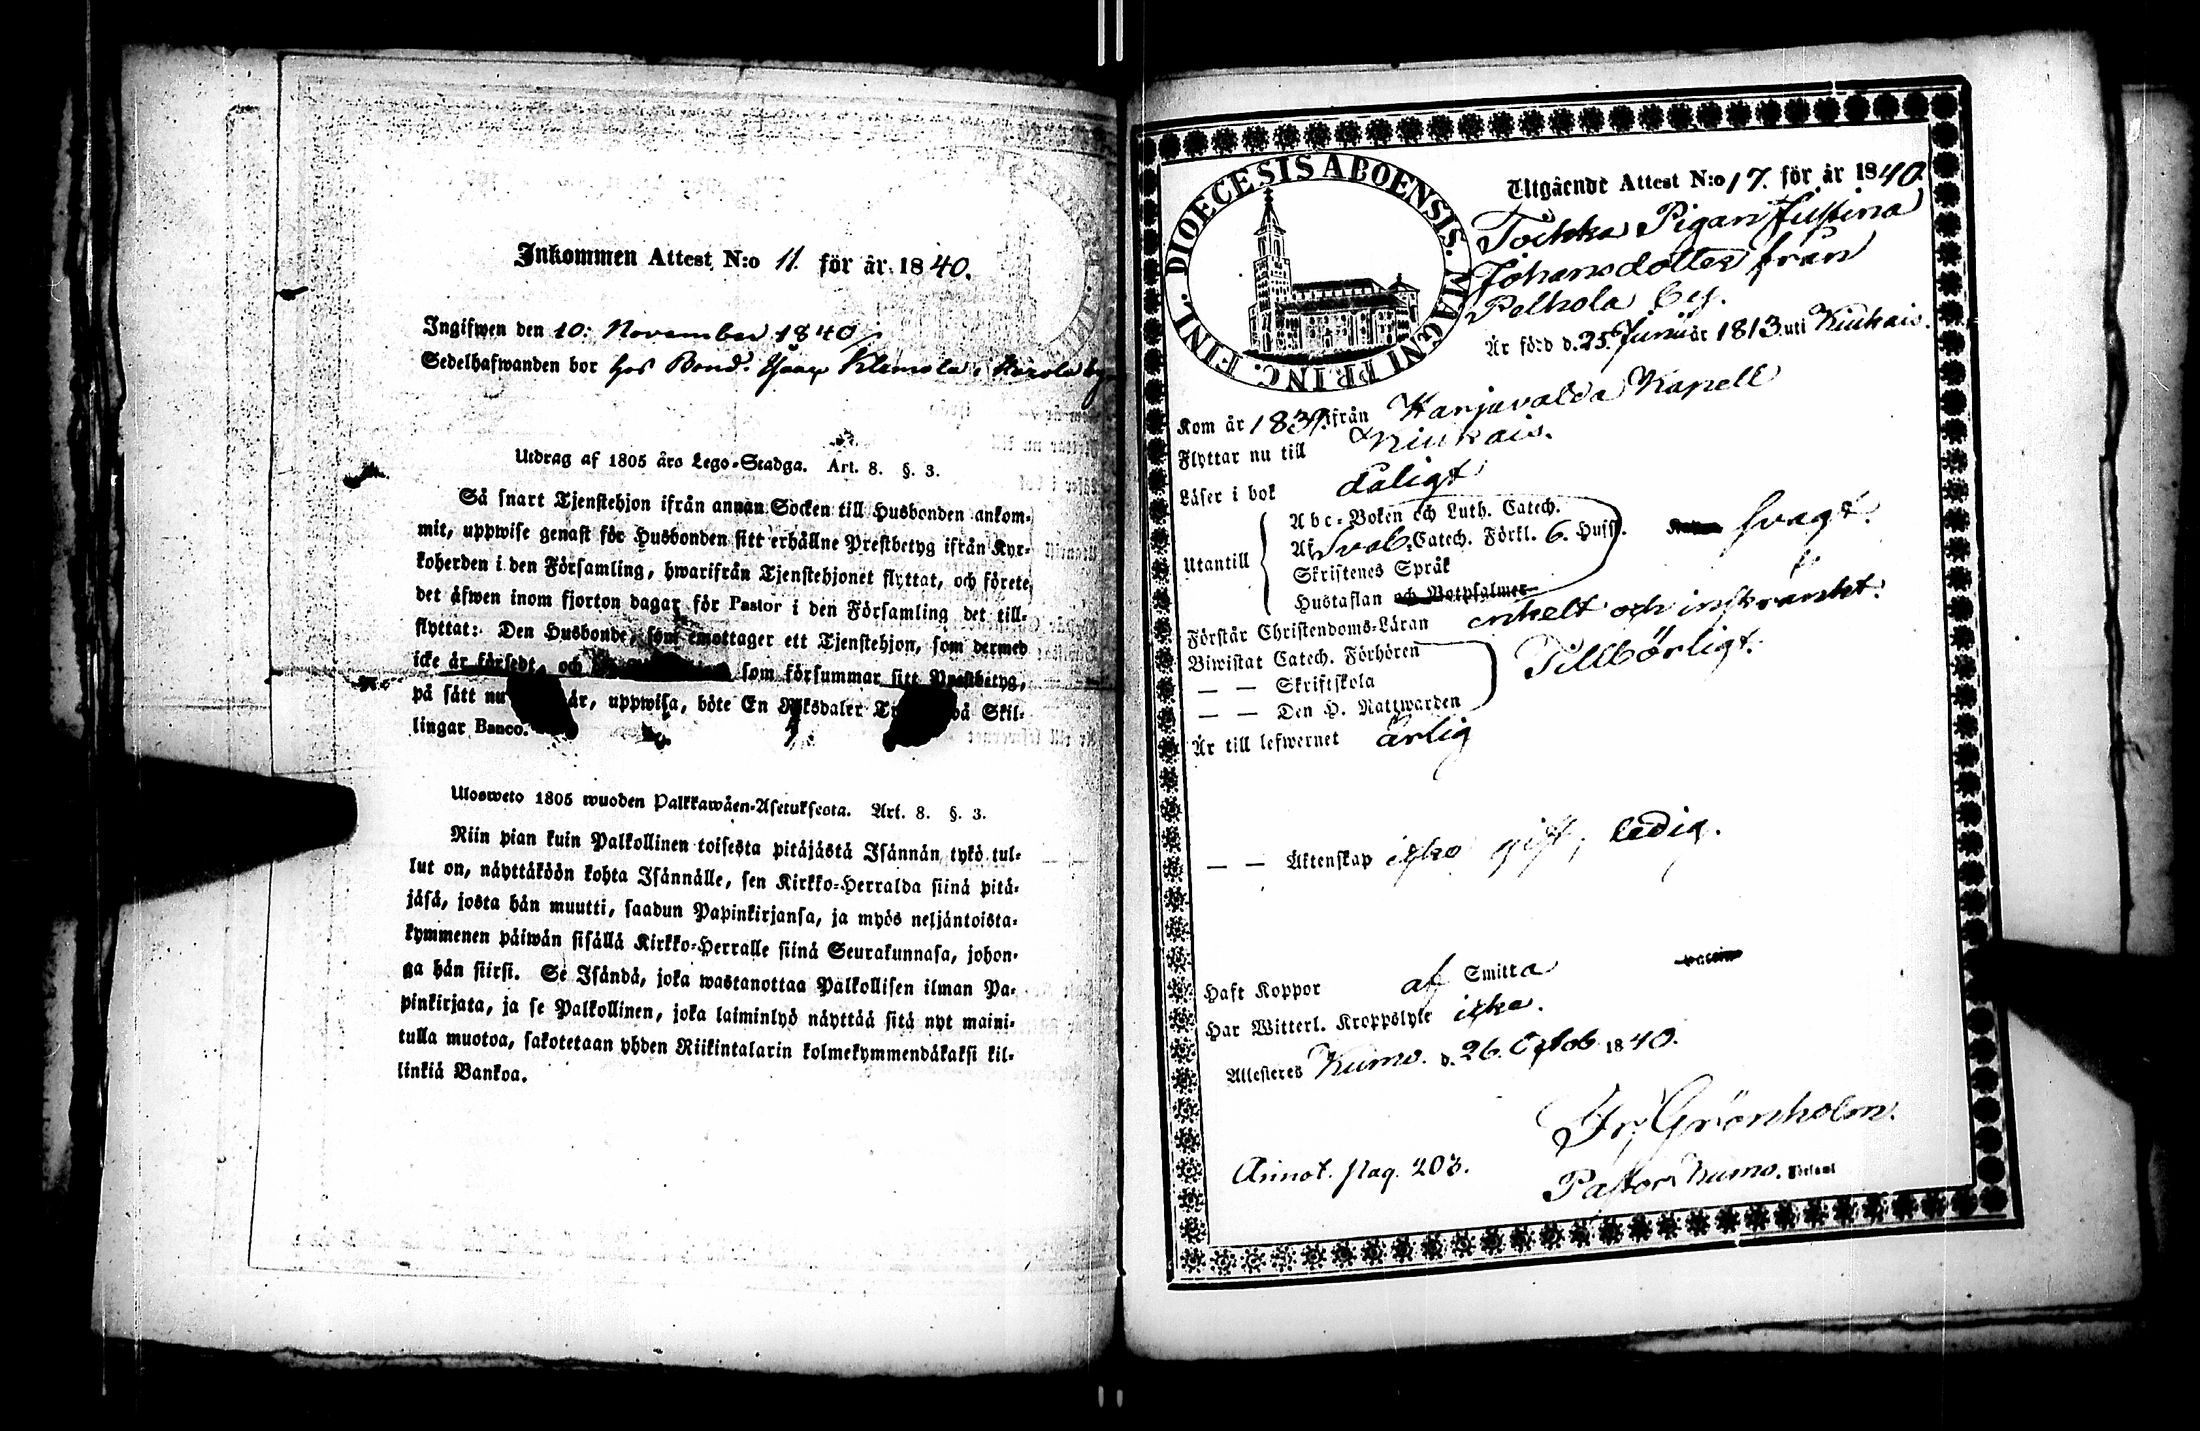 Inkommen Attest N:o 11. för år 1840.
Ingifwen den 10: November 1840
Sedelhafwanden bor hos Bond. Klemola i by
Utdrag af 1805 års Lego-Stadga. Art. 8. §. 3.
Så snart Tjenstehjon ifrån annan Socken till Husbonden ankom-
mit, uppwise genast för Husbonden sitt erhållne Prestbetyg ifrån Kyr-
koherden i den Församling, hwarifrån Tjenstehjonet flyttat, och förete
det äfwen inom fjorton dagar för Pastor i den Församling det till-
flyttat: Den Husbonde, som emottager ett Tjenstehjon, som dermed
icke är försedt, och som försummar sitt Prestbetyg,
på sätt nu är, uppwisa, böte En Riksdaler Skil-
lingar Banco.
Ulosweto 1805 wuoden Palkkawäen-Asetuksesta. Art. 8. §. 3.
Niin pian kuin Palkollinen toisesta pitäjästä Isännän tykö tul-
lut on, näyttäköön kohta Isännälle, sen Kirkko-Herralda siinä pitä-
jäsä, josta hän muutti, saadun Papinkirjansa, ja myös neljäntoista-
kymmenen päiwän sisällä Kirkko-Herralle siinä Seurakunnasa, johon-
ga hän siirsi. Se Isändä, joka wastanottaa Palkollisen ilman Pa-
pinkirjata, ja se Palkollinen, joka laiminlyö näyttää sitä nyt maini-
tulla muotoa, sakotetaan yhden Riikintalarin kolmekymmendäkaksi kil-
linkiä Bankoa.
DIOECESIS ABOENSIS. MAGNI PRINC. FINL.
Utgående Attest N:o 17. för år 1840.
Toikka Pigan Justina
Johansdotter från
Pelhola by.
Är född d. 25. Junii år 1813 uti Kiukais.
Kom år 1839 ifrån Harjavalda Kapell
Flyttar nu till Kiukais.
Läser i bok dåligt
Utantill
Abc-Boken och Luth. Catech.
Af Sveb. Catech. Förkl. 6. Hufs. svagt.
Skriftenes Språk
Hustaflan och Botpsalmer
Förstår Christendoms-Läran enkelt och inskränkt.
Biwistat Catech. Förhören
— — Skriftskola Tillbörligt.
— — Den H. Nattwarden
Är till lefwernet ärlig
— — Äktenskap icke gift, ledig.
Haft Koppor af Smitta
Har Witterl. Kroppslyte icke.
Attesteres Kumo. d. 26. Octob. 1840.
Fr. Grönholm.
Annot. pag. 203. Pastor Kumo. Förtaml